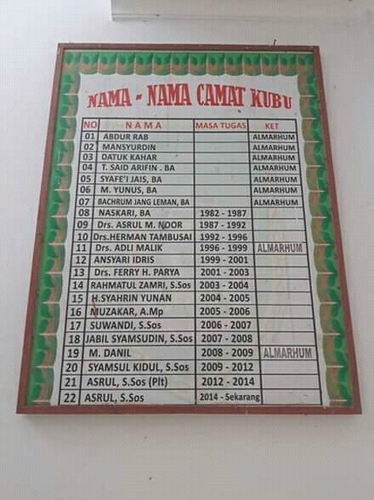 NAMA - NAMA CAMAT KUBU
NO NAMA MASA TUGAS KET
01 ABDUR RAB ALMARHUM
02 MANSYURDIN ALMARHUM
03 DATUK KAHAR ALMARHUM
04 T. SAID ARIFIN . BA ALMARHUM
05 SYAFE'I JAIS, BA ALMARHUM
06 M. YUNUS, BA ALMARHUM
07 BACHRUM JANG LEMAN, BA ALMARHUM
08 NASKARI, BA 1982 - 1987
09 Drs. ASRUL M. NOOR 1987 - 1992
10 Drs.HERMAN TAMBUSAI 1992 - 1996
11 Drs. ADLI MALIK 1996 - 1999 ALMARHUM
12 ANSYARI IDRIS 1999 - 2001
13 Drs. FERRY H. PARYA 2001 - 2003
14 RAHMATUL ZAMRI, S.Sos 2003 - 2004
15 H.SYAHRIN YUNAN 2004 - 2005
16 MUZAKAR, A.Mp 2005 - 2006
17 SUWANDI, S.Sos 2006 - 2007
18 JABIL SYAMSUDIN, S.Sos 2007 - 2008
19 M. DANIL 2008 - 2009 ALMARHUM
20 SYAMSUL KIDUL, S.Sos 2009 - 2012
21 ASRUL, S.Sos (Plt) 2012 - 2014
22 ASRUL, S.Sos 2014 - Sekarang